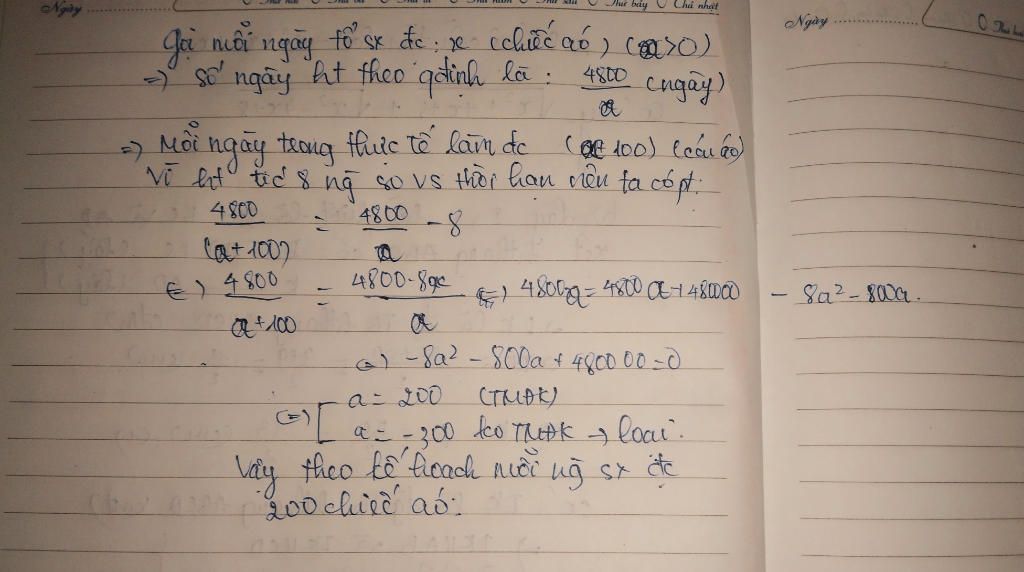 Ngày
Thứ bảy Chủ nhật
Ngày
Gọi mỗi ngày tổ sx đc: x (chiếc áo) (a>0)
=) số ngày ht theo qđịnh là: 4800/a (ngày)
=) Mỗi ngày trong thực tế làm đc (a+100) (cái áo)
Vì ht trc 8 ng so vs thời hạn nên ta có pt:
4800/(a+100) = 4800/a - 8
(=) 4800/a+100 = 4800-8a/a (=) 4800a = 4800a+480000 - 8a² - 800a.
(=) -8a² - 800a + 480000 = 0
(=) [ a = 200 (TMĐK)
a = -300 ko TMĐK → loại.
Vậy theo kế hoạch mỗi ng sx đc
200 chiếc áo.